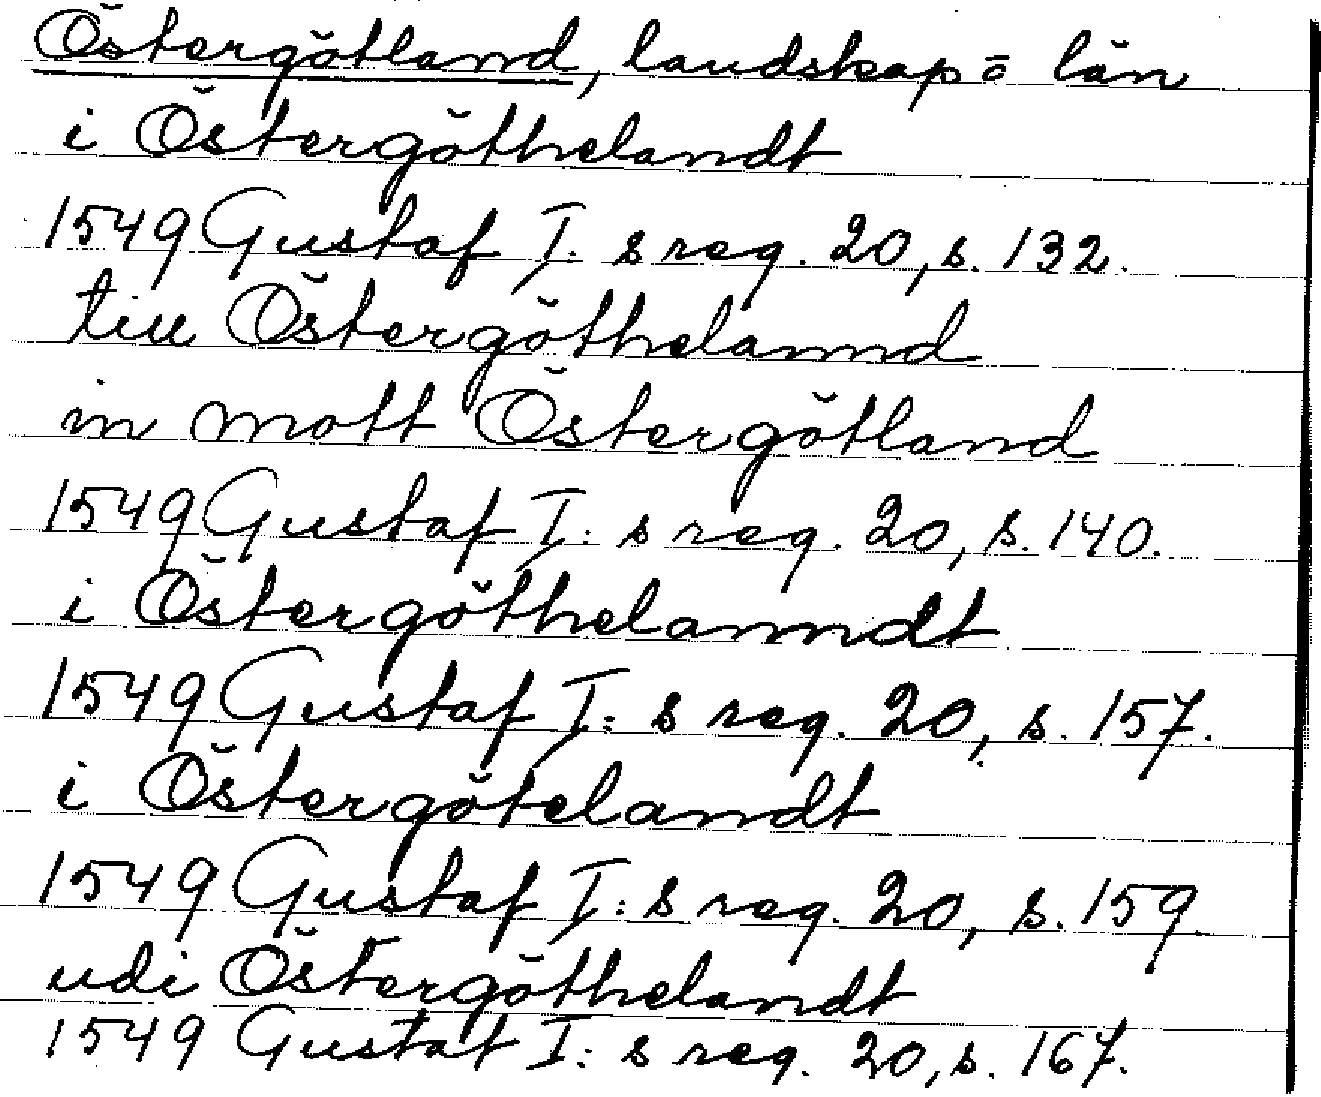 Östergötland, landskap o län
i Östergöthelandt
1549 Gustaf I. s reg. 20, s. 132.
till Östergöthelannd
in mott Östergötland
1549 Gustaf I: s reg. 20, s. 140.
i Östergöthelanndt
1549 Gustaf I: s reg. 20, s. 157.
i Östergötelandt
1549 Gustaf I: s reg. 20, s. 159.
udi Östergöthelandt
1549 Gustaf I: s reg. 20, s. 167.